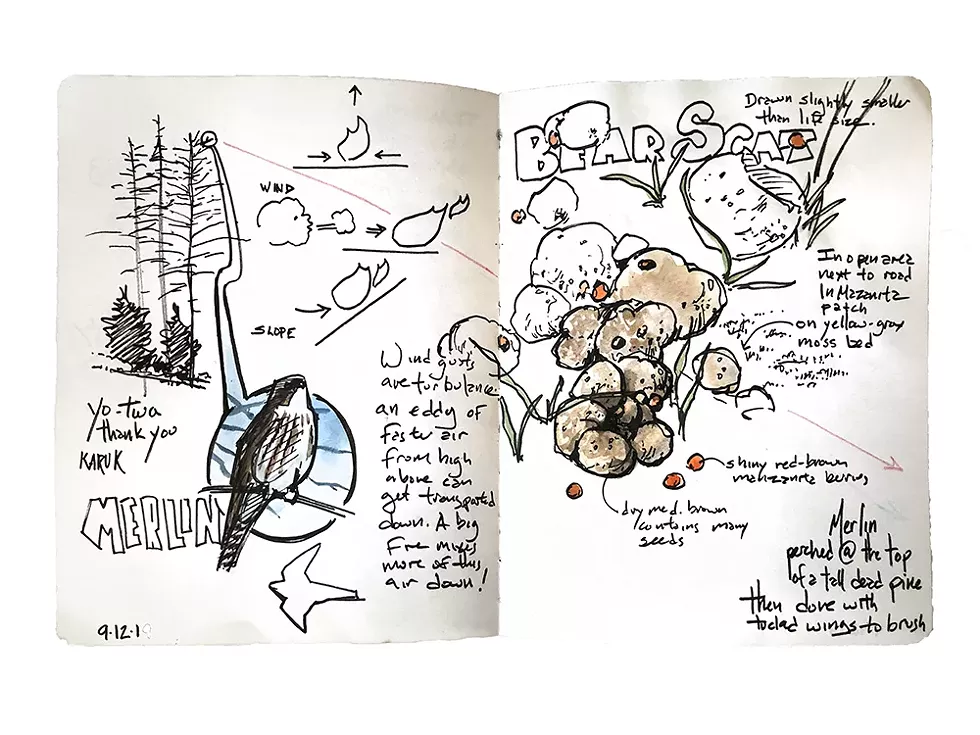 WIND
SLOPE
Yo-twa
thank you
KARUK
MERLIN
9.12.19
Wind gusts
are turbulence
an eddy of
faster air
from high
above can
get transported
down. A big
fire mixes
more of this
air down!
BEAR SCAT
Drawn slightly smaller
than life size.
In open area
next to road
In Mazanita
patch
on yellow-gray
moss bed
shiny red-brown
manzanita berries
dry med. brown
contains many
seeds
Merlin
perched @ the top
of a tall dead pine
then dove with
tucked wings to brush